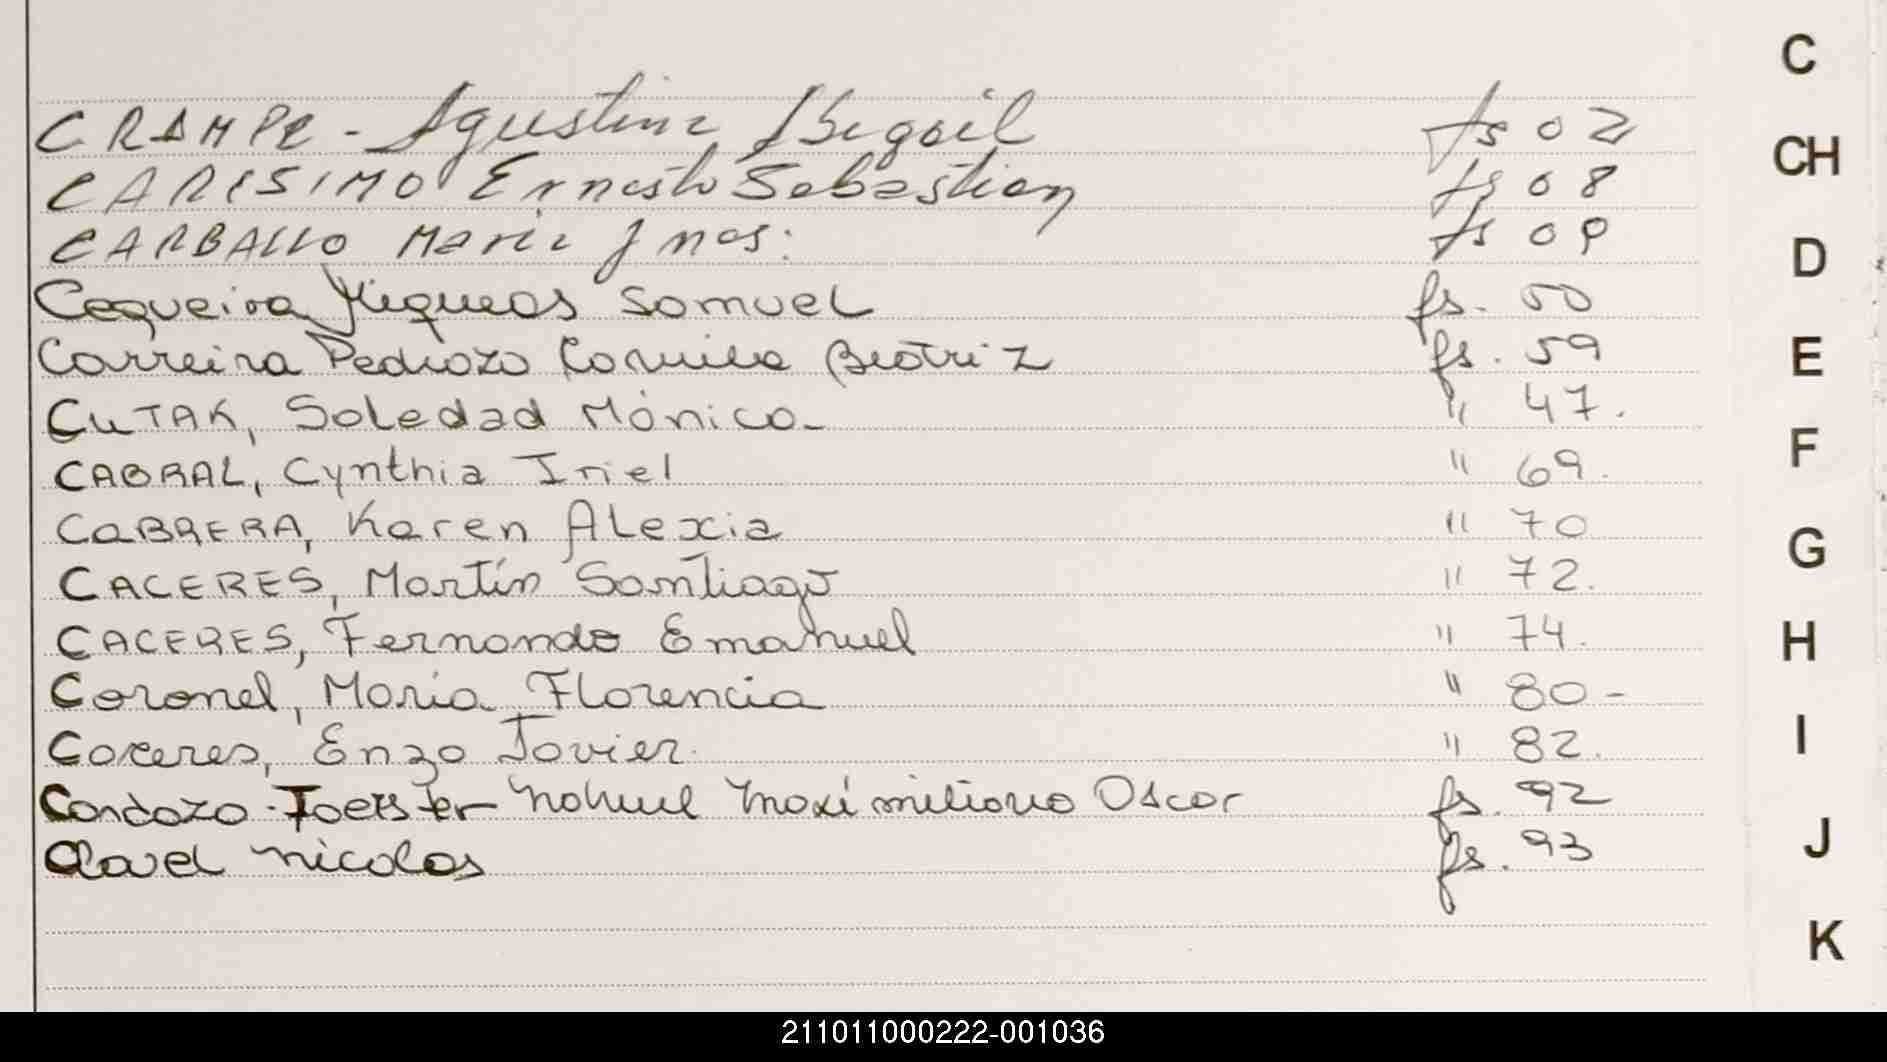 CRAMPE - Agustina Abigail fs 02
CARISIMO Ernesto Sebastian fs 08
CARBALLO Maria Ines: fs 09
Cequeira Miqueas Samuel fs. 50
Carreira Pedrozo Camila Beatriz fs. 59
CUTAK, Soledad Mónica - " 47.
CABRAL, Cynthia Iriel " 69.
CABRERA, Karen Alexia " 70
CACERES, Martín Santiago " 72.
CACERES, Fernando Emanuel " 74.
Coronel, Maria Florencia " 80 -
Caceres, Enzo Javier. " 82.
Cardozo - Toerster Nahuel Maximiliano Oscar fs. 92
Clavel Nicolas fs. 93
C
CH
D
E
F
G
H
I
J
K
211011000222-001036